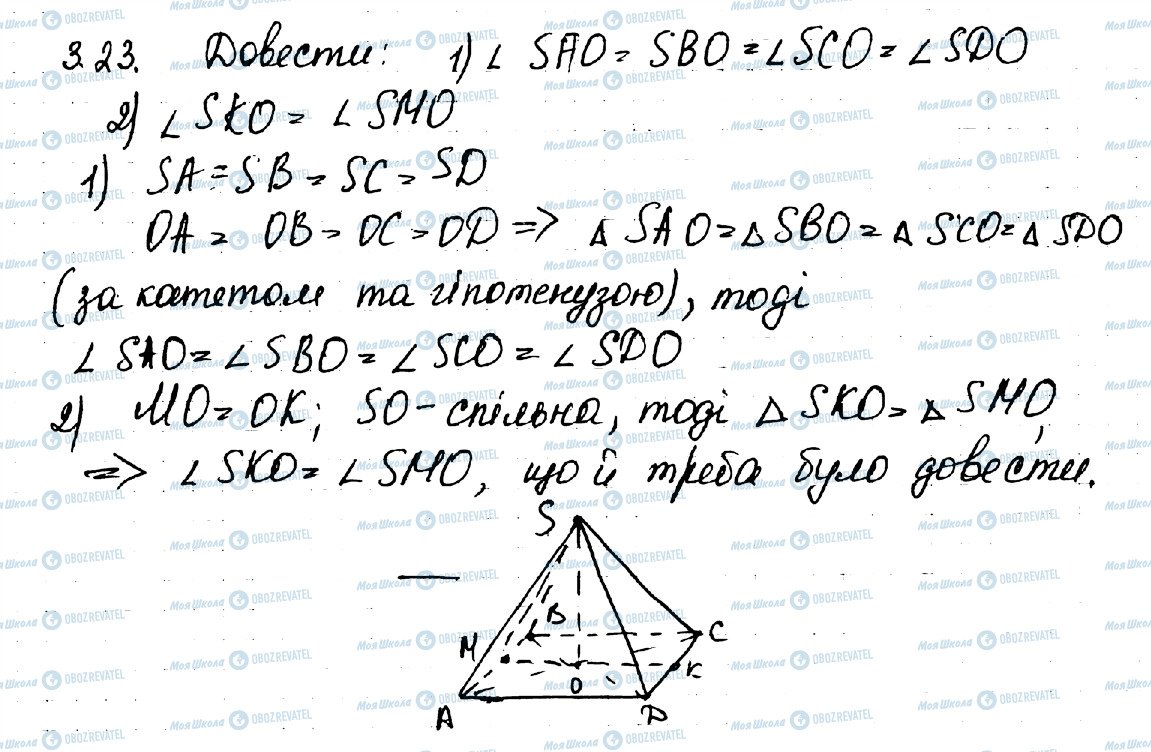 3.23. Довести: 1) ∠ SAO = SBO = ∠SCO = ∠SDO
2) ∠SKO = ∠SMO
1) SA = SB = SC = SD
OA = OB = OC = OD => △ SAO = △SBO = △ SCO = △ SDO
(за катетом та гіпотенузою), тоді
∠ SAO = ∠SBO = ∠SCO = ∠ SDO
2) MO = OK; SO - спільна, тоді △ SKO = △ SMO,
=> ∠SKO = ∠SMO, що й треба було довести.
S
B
C
M
K
O
A
D
Моя Школа OBOZREVATEL